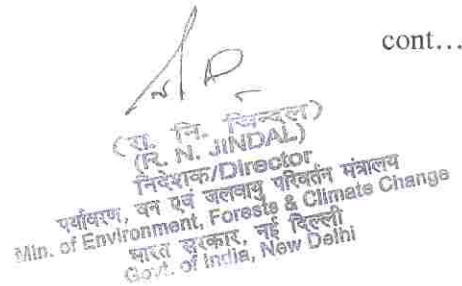 cont...
(रा. नि. जिन्दल)
(R. N. JINDAL)
निदेशक/Director
पर्यावरण, वन एवं जलवायु परिवर्तन मंत्रालय
Min. of Environment, Forests & Climate Change
भारत सरकार, नई दिल्ली
Govt. of India, New Delhi